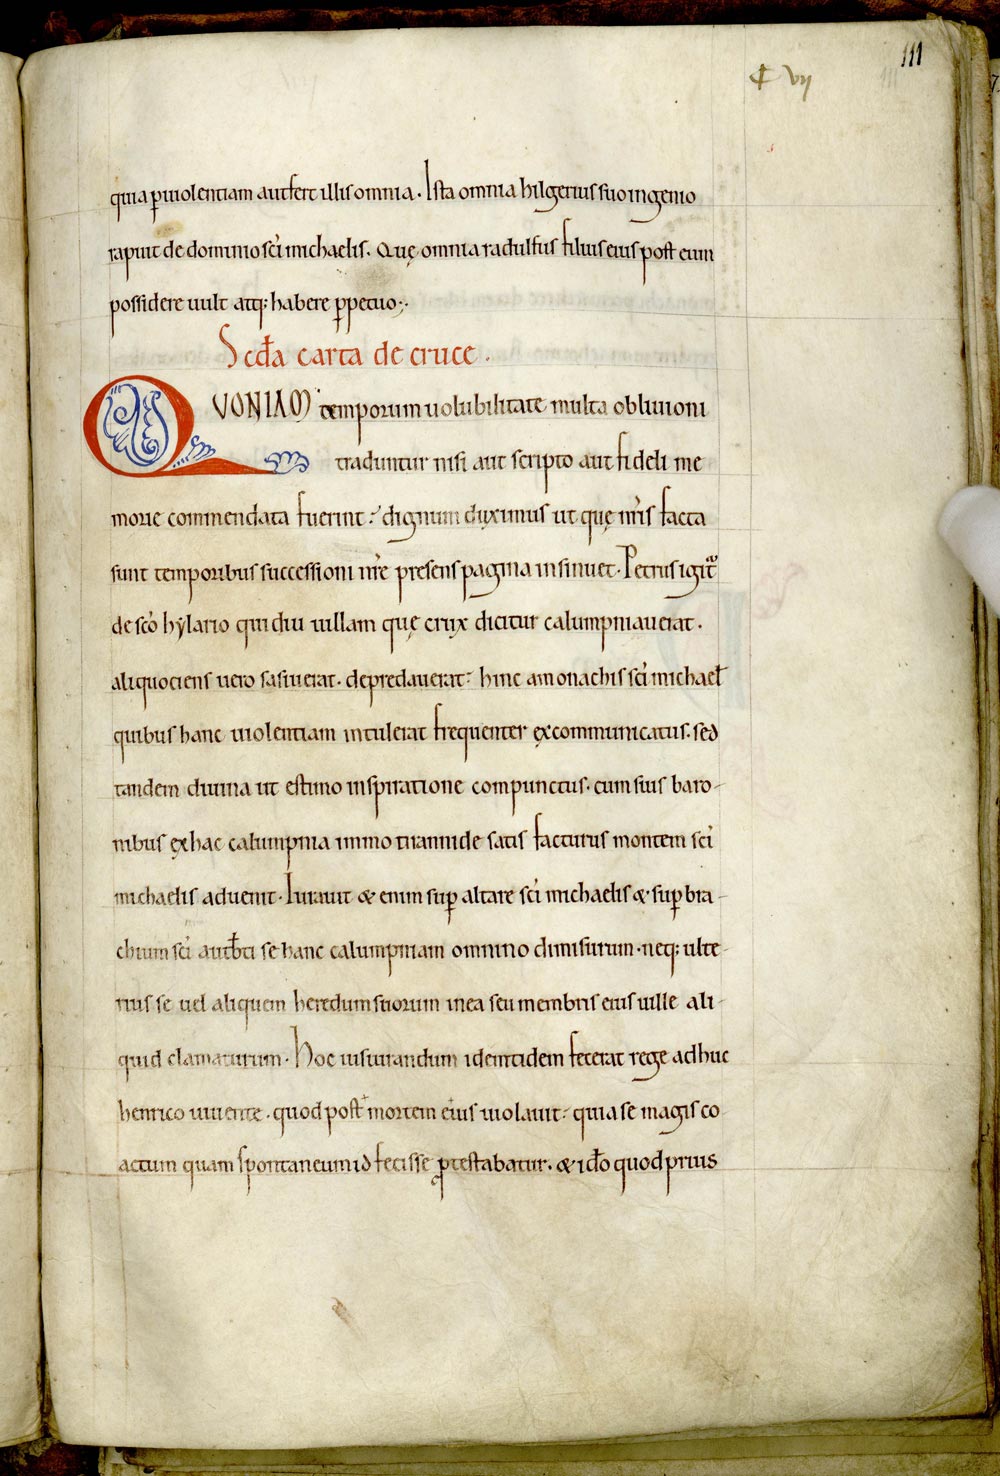 ₵ vij
111
quia ꝑ uiolentiam aufert illis omnia. Ista omnia hilgerius suo ingenio
rapuit de dominio sc̄i michaelis. Quę omnia radulfus filius eius post eum
possidere uult atq; habere ꝑpetuo;.
Scd̄a carta de cruce.
QVONIAM temporum uolubilitate multa obliuioni
traduntur nisi aut scripto aut fideli me
morie commendata fuerint: dignum duximus ut quę nr̄is facta
sunt temporibus successioni nr̄e presens pagina insinuet. Petrus igit᷑
de sc̄o hẏlario qui diu uillam quę crux dicitur calumpniauerat.
aliquociens uero sasiuerat. depredauerat: hinc a monachis sc̄i michael̄
quibus hanc uiolentiam intulerat frequenter excommunicatus. sed
tandem diuina ut estimo inspiratione compunctus. cum suis baro-
nibus ex hac calumpnia immo tirannide satis facturus montem sc̄i
michaelis aduenit. Iurauit & enim suꝑ altare sc̄i michaelis & suꝑ bra-
chium sc̄i autb̄ti se hanc calumpniam omnino dimisurum. neq; ulte-
rius se uel aliquem heredum suorum in ea seu membris eius uille ali-
quid clamaturum. Hoc iusiurandum identidem fecerat rege adhuc
henrico uiuente. quod post mortem eius uiolauit: quia se magis co
actum quam spontaneum id fecisse ꝓtestabatur. & id̄o quod prius